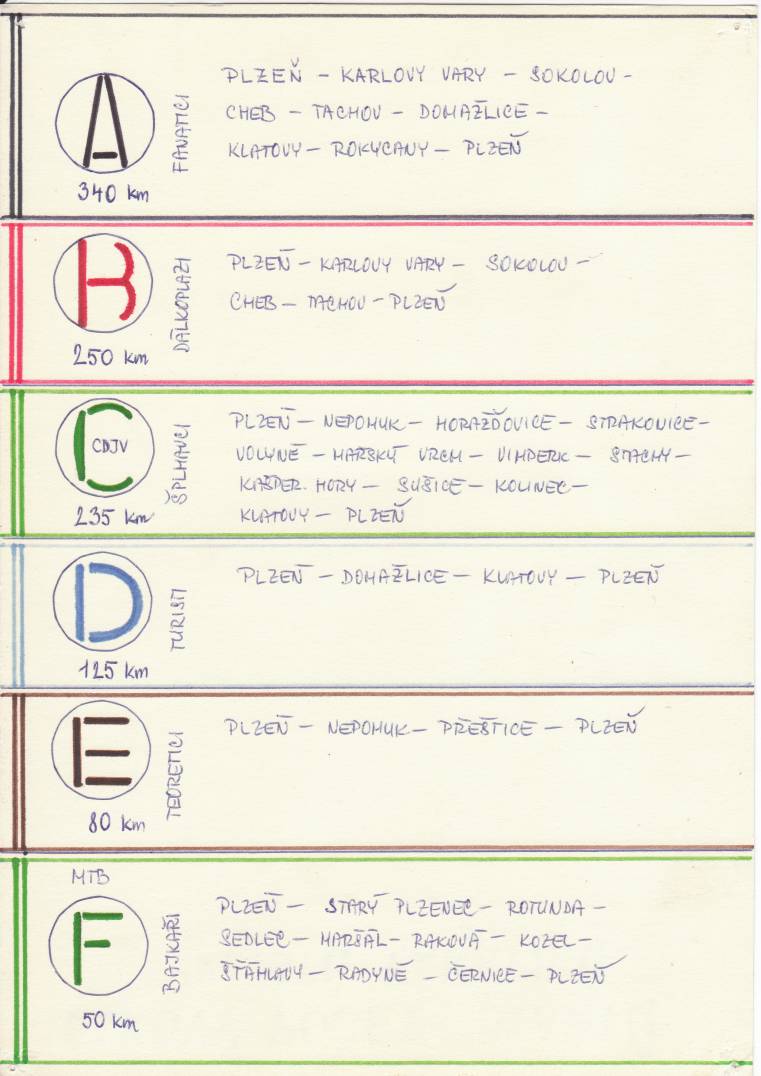 A
FANATICI
340 km
PLZEŇ – KARLOVY VARY – SOKOLOV –
CHEB – TACHOV – DOMAŽLICE –
KLATOVY – ROKYCANY – PLZEŇ
B
DÁLKOPLAZI
250 km
PLZEŇ – KARLOVY VARY – SOKOLOV –
CHEB – TACHOV – PLZEŇ
C
CDJV
ŠPLHAVCI
235 km
PLZEŇ – NEPOMUK – HORAŽĎOVICE – STRAKONICE –
VOLYNĚ – MAŘSKÝ VRCH – VIMPERK – STACHY –
KAŠPER. HORY – SUŠICE – KOLINEC –
KLATOVY – PLZEŇ
D
TURISTI
125 km
PLZEŇ – DOMAŽLICE – KLATOVY – PLZEŇ
E
TEORETICI
80 km
PLZEŇ – NEPOMUK – PŘEŠTICE – PLZEŇ
MTB
F
BAJKAŘI
50 km
PLZEŇ – STARÝ PLZENEC – ROTUNDA –
SEDLEC – MARŠÁL – RAKOVÁ – KOZEL –
ŠŤÁHLAVY – RADYNĚ – ČERNICE – PLZEŇ